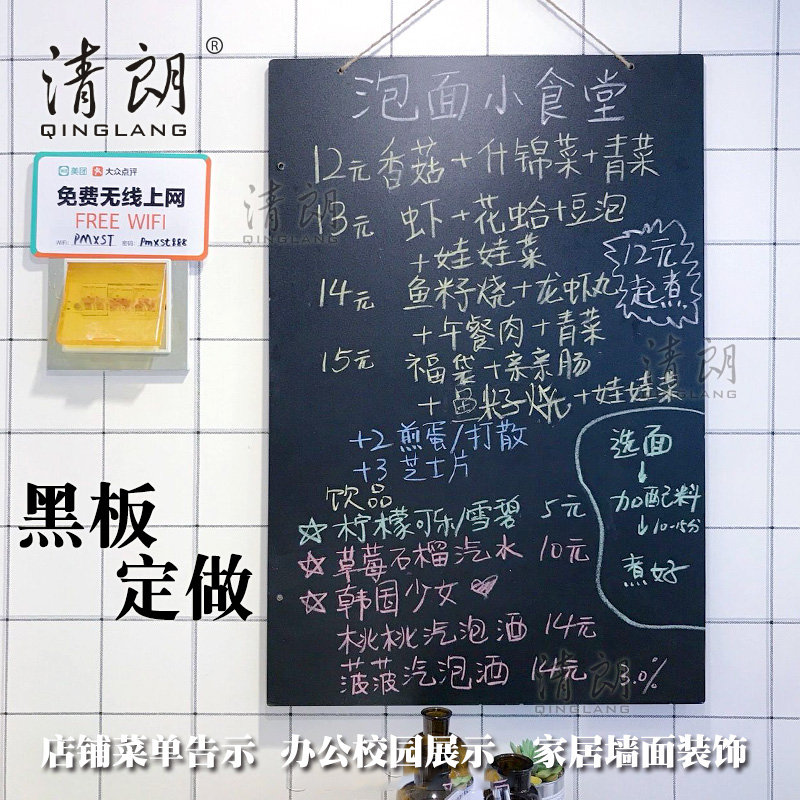 清朗®
QINGLANG
美团 大众点评
免费无线上网
FREE WIFI
WiFi: PMXST 密码: Pmxst888
泡面小食堂
12元 香菇+什锦菜+青菜
清朗
QINGLANG
13元 虾+花蛤+豆泡
+娃娃菜
12元
起煮
14元 鱼籽烧+龙虾丸
+午餐肉+青菜
15元 福袋+亲亲肠
+鱼籽烧+娃娃菜
清朗
QINGLANG
+2 煎蛋/打散
+3 芝士片
选面
↓
加配料
↓10-15分
煮好
饮品
☆柠檬可乐/雪碧 5元
☆草莓石榴汽水 10元
☆韩国少女♥
桃桃汽泡酒 14元
菠菠汽泡酒 14元 3.0%
清朗
QINGLANG
黑板
定做
店铺菜单告示 办公校园展示 家居墙面装饰